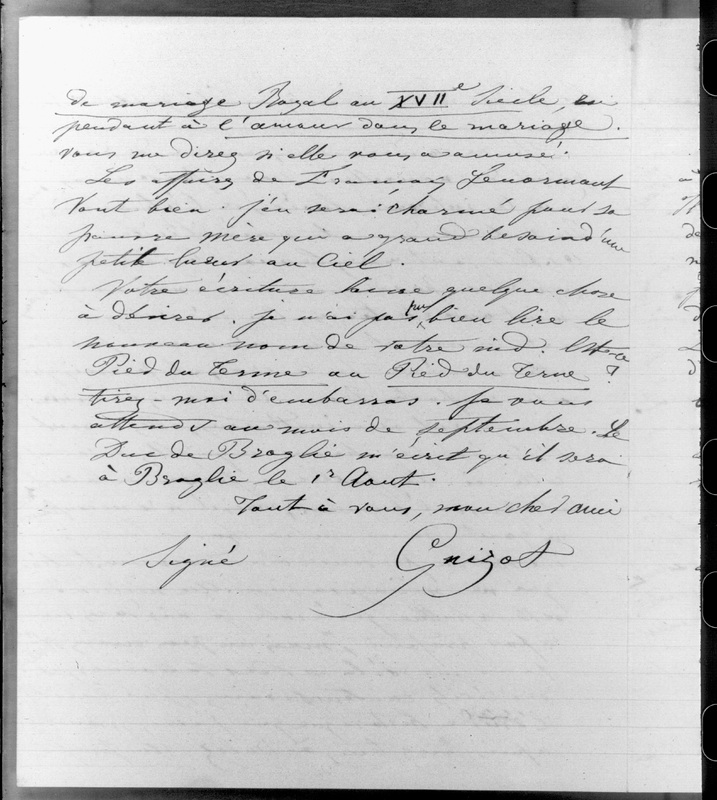 de mariage Royal au XVIIe Siècle, en
pendant à l'amour dans le mariage.
vous me direz si elle vous a amusé.
Les affaires de François Lenormant
vont bien. j'en serai charmé pour sa
pauvre mère qui a grand besoin d'une
petite lueur au Ciel.
Votre écriture laisse quelque chose
à désirer. je n'ai pas pu bien lire le
nouveau nom de votre nid. Est-ce
Pied du Terme ou Pied du Terne ?
tirez-moi d'embarras. je vous
attends au mois de septembre. Le
Duc de Broglie m'écrit qu'il sera
à Broglie le 1r Aout.
Tout à vous, mon cher ami
Signé Guizot